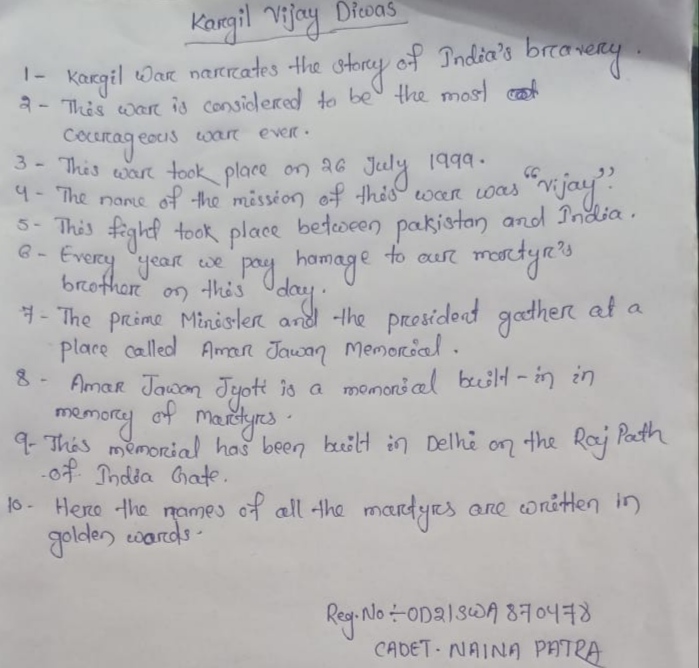 Kargil Vijay Diwas
1- Kargil War narrates the story of India's bravery.
2- This war is considered to be the most
courageous war ever.
3- This war took place on 26 July 1999.
4- The name of the mission of this war was "vijay".
5- This fight took place between pakistan and India.
6- Every year we pay hamage to our martyr's
brother on this day.
7- The prime Minister and the president gather at a
place called Amar Jawan Memorial.
8- Amar Jawan Jyoti is a memorial built-in in
memory of martyrs.
9- This memorial has been built in Delhi on the Raj Path
of India Gate.
10- Here the names of all the martyrs are written in
golden wards.
Reg.No:-OD21SWA870478
CADET. NAINA PATRA